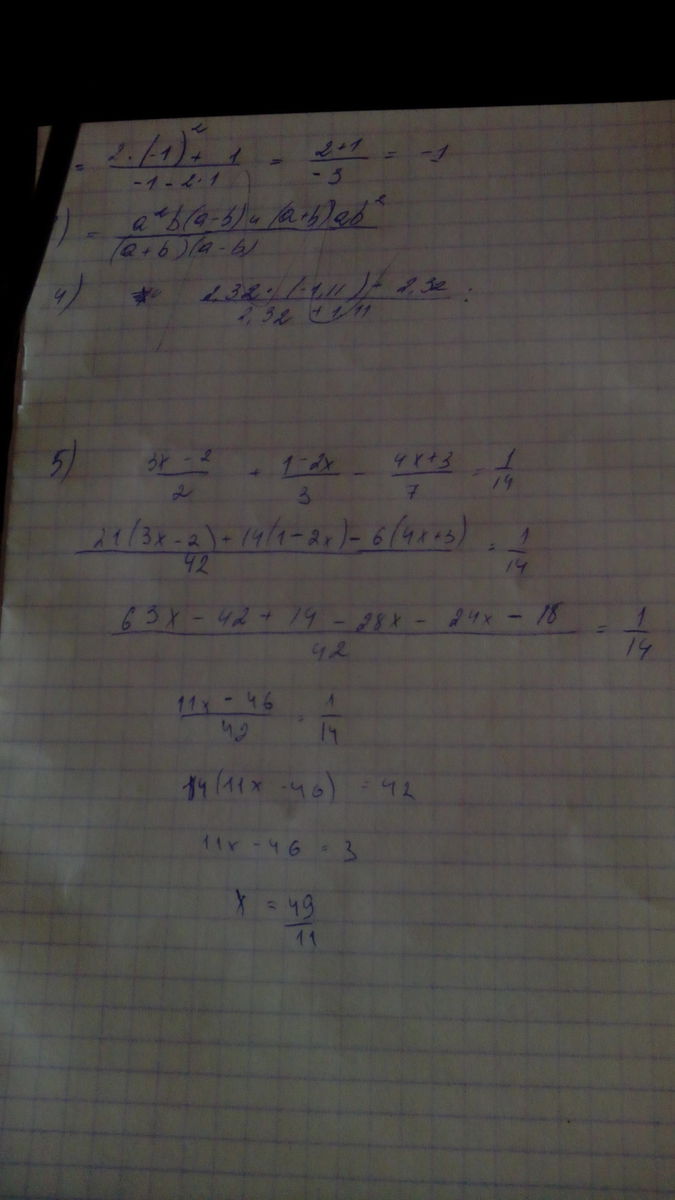 = (2·(-1)² + 1)/(-1 - 2·1) = (2+1)/(-3) = -1
) = (a²b(a-b) (a+b)ab²)/((a+b)(a-b))
4) (2,32·(-1,11) + 2,32)/(2,32 + 1,11) :
5) (3x - 2)/2 + (1-2x)/3 - (4x+3)/7 = 1/14
(21(3x-2) + 14(1-2x) - 6(4x+3))/42 = 1/14
(63x - 42 + 14 - 28x - 24x - 18)/42 = 1/14
(11x - 46)/42 = 1/14
14(11x - 46) = 42
11x - 46 = 3
x = 49/11